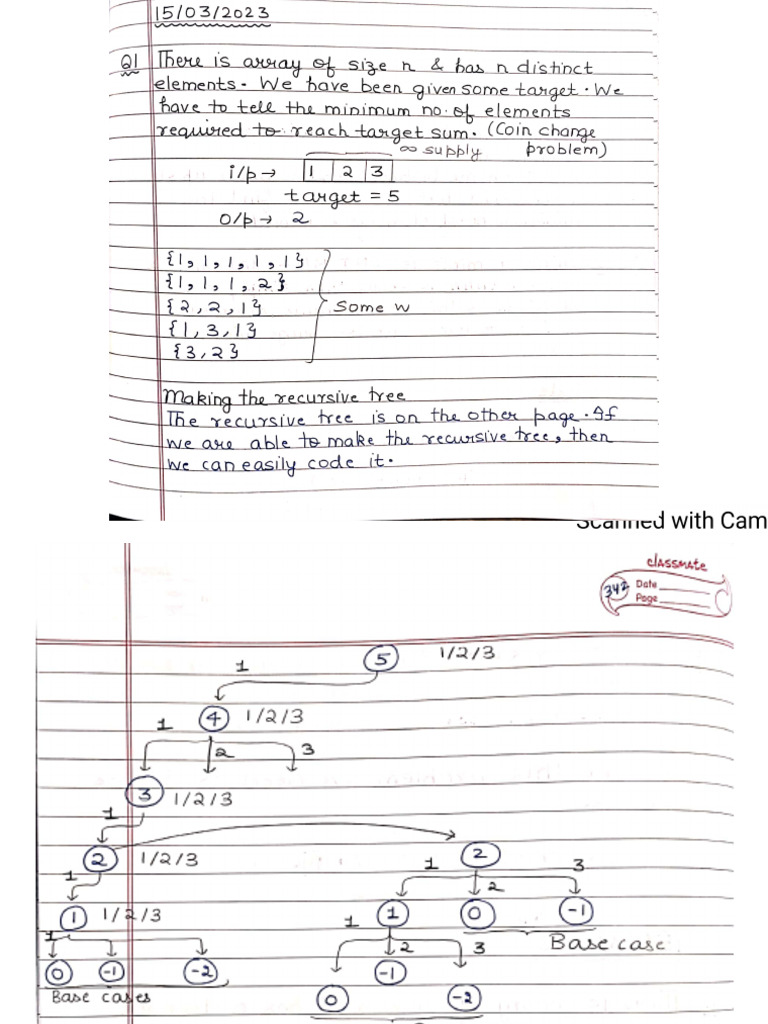 15/03/2023
Q1 There is array of size n & has n distinct
elements. We have been given some target. We
have to tell the minimum no. of elements
required to reach target sum. (Coin change
∞ supply problem)
i/p → 1 2 3
target = 5
O/p → 2
{1, 1, 1, 1, 1}
{1, 1, 1, 2}
{2, 2, 1}
{1, 3, 1}
{3, 2}
Some w
Making the recursive tree
The recursive tree is on the other page. If
we are able to make the recursive tree, then
we can easily code it.
Scanned with Cam
classmate
Date
347
Page
5 1/2/3
1
4 1/2/3
1 2 3
3 1/2/3
1
2 1/2/3 2
1 1 2 3
1 1/2/3 1 0 -1
1 1 2 3 Base case
0 -1 -2 -1
Base cases 0 -2